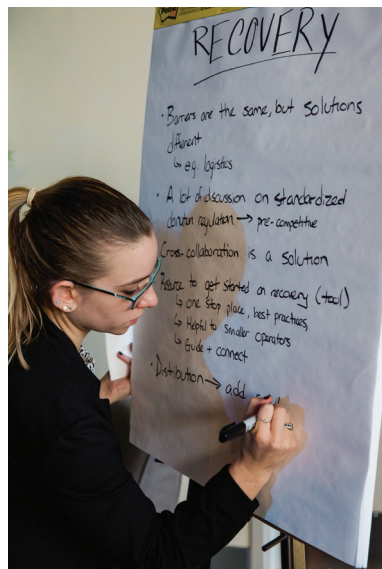 RECOVERY
• Barriers are the same, but solutions
different
↳ e.g. logistics
• A lot of discussion on standardized
donation regulation → pre-competitive
Cross-collaboration is a solution
to get started on recovery (tool)
↳ one stop place, best practices,
↳ Helpful to smaller operators
↳ Guide + connect
• Distribution → add